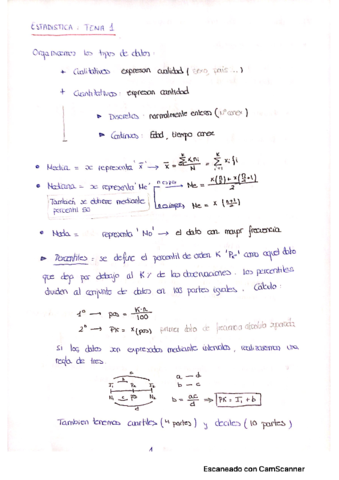 ESTADÍSTICA : TEMA 1
Organizamos los tipos de datos:
+ Cualitativos expresan cualidad (sexo, país ...)
+ Cuantitativos: expresan cantidad
▸ Discretos : normalmente enteros (nº
▸ Continuos: Edad, tiempo
• Media = se representa 'x̄' → x̄ = Σxᵢnᵢ / N = Σ xᵢfᵢ
• Mediana = se representa 'Me' n es par → Me = (x(n/2) + x(n/2 + 1)) / 2
También se obtiene mediante percentil 50 n es impar → Me = x((n+1)/2)
• Moda = representa 'Mo' → el dato con mayor frecuencia
▸ Percentiles = se define el percentil de orden K 'Pₖ' como aquel dato
que deja por debajo al K % de las observaciones. Los percentiles
dividen al conjunto de datos en 100 partes iguales. Cálculo:
1º → pos = K·n / 100
2º → PK = x(pos) primer dato de frecuencia absoluta
Si los datos son expresados mediante intervalos, realizaremos una
regla de tres.
a
b
I₁ Pₖ I₂
N₁ c pos N₂
d
a – d
b – c
b = ac / d → PK = I₁ + b
También tenemos cuartiles (4 partes) y deciles (10 partes)
1
Escaneado con CamScanner